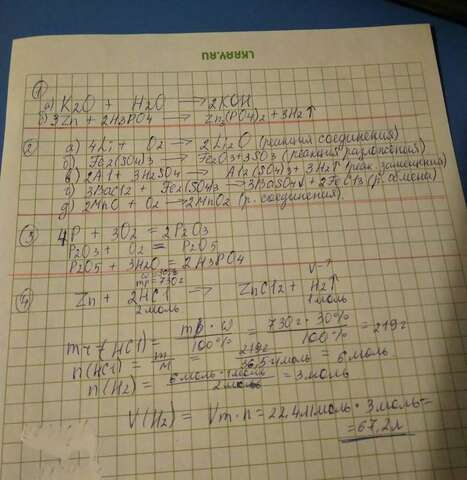 LKRAY.RU
①
а) K2O + H2O → 2KOH
б) 3Zn + 2H3PO4 → Zn3(PO4)2 + 3H2↑
② а) 4Li + O2 → 2Li2O (реакция соединения)
б) Fe2(SO4)3 → Fe2O3+3SO3 (реакция разложения)
в) 2Al + 3H2SO4 → Al2(SO4)3 + 3H2↑ (реак. замещения)
г) 3BaCl2 + Fe2(SO4)3 → 3BaSO4↓ + 2FeCl3 (р. обмена)
д) 2MnO + O2 → 2MnO2 (р. соединения)
③ 4P + 3O2 = 2P2O3
P2O3 + O2 = P2O5
P2O5 + 3H2O = 2H3PO4
ω = 30%
mр = 730г
V-?
④ Zn + 2HCl → ZnCl2 + H2↑
2моль 1моль
(HCl) = mр · ω / 100% = 730г · 30% / 100% = 219г
n(HCl) = m / M = 219г / 36,5 г/моль = 6 моль
n(H2) = 6 моль · 1 моль / 2 моль = 3 моль
V(H2) = Vm · n = 22,4 л/моль · 3 моль =
= 67,2 л